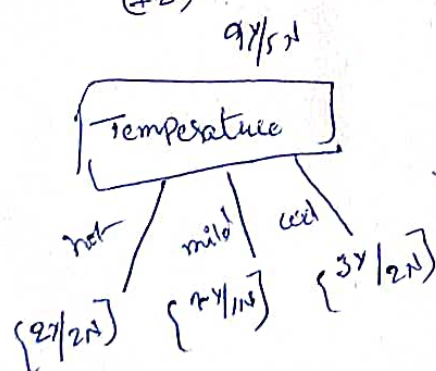 9Y/5N
Temperature
hot mild cool
{2Y/2N} {Y/1N} {3Y/2N}